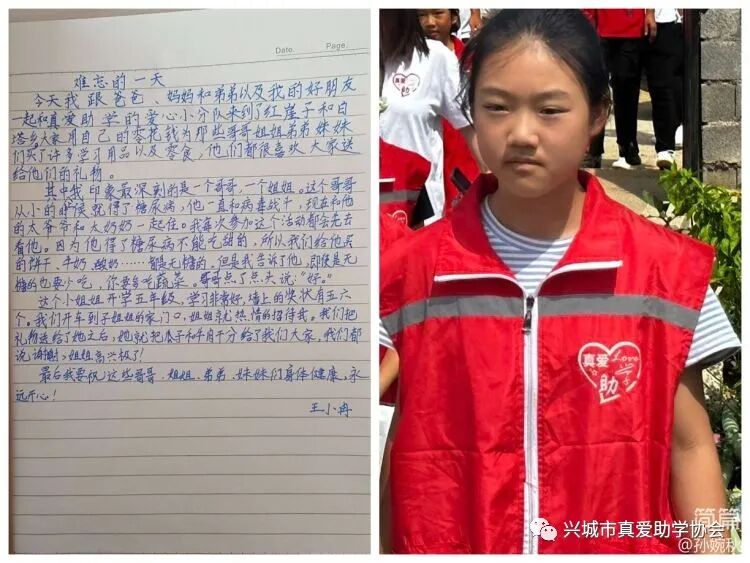 Date.
Page:
难忘的一天
今天我跟爸爸、妈妈和弟弟以及我的好朋友
一起和真爱助学的爱心小分队来到了红崖子和白
塔乡大家用自己的零花钱为那些哥哥姐姐弟弟妹妹
们买了许多学习用品以及零食，他们都很喜欢大家送
给他们的礼物。
其中我印象最深刻的是一个哥哥，一个姐姐。这个哥哥
从小的时候就得了糖尿病，他一直和病毒战斗，现在和他
的太爷爷和太奶奶一起住。我每次参加这个活动都会先去
看他。因为他得了糖尿病不能吃甜的，所以我们给他买
的饼干、牛奶，酸奶……都是无糖的。但是我告诉他，即使是无
糖的也要少吃，你要多吃蔬菜。哥哥点了点头说："好。"
这个小姐姐开学五年级，学习非常好，墙上的奖状有五六
个。我们开车到了姐姐的家门口，姐姐就热情的招待我。我们把
礼物送给了她之后，她就把瓜子和月干分给了我们大家，我们都
说谢谢，姐姐高兴极了！
最后我要祝这些哥哥、姐姐、弟弟、妹妹们身体健康，永
远开心！
王小冉
真爱
真爱
Love
助学
兴城市真爱助学协会
简篇
@孙婉秋